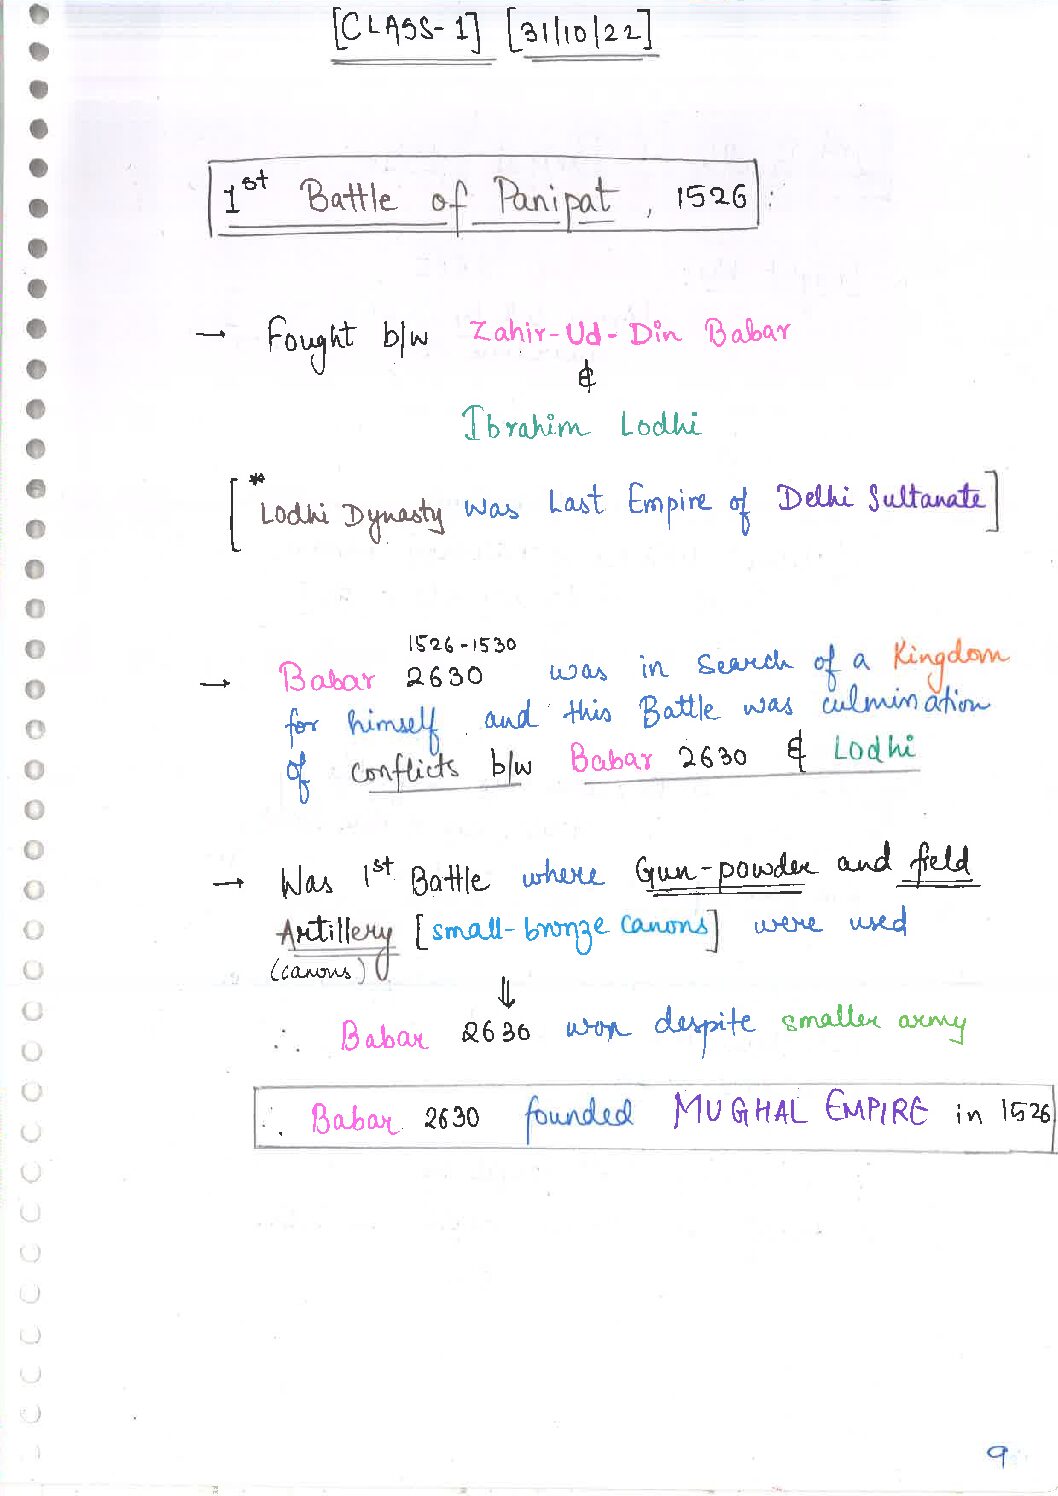 [CLASS-1] [31/10/22]
1st Battle of Panipat, 1526 :
→ Fought b/w Zahir-Ud-Din Babar
&
Ibrahim Lodhi
[*Lodhi Dynasty was Last Empire of Delhi Sultanate]
1526-1530
→ Babar 2630 was in search of a Kingdom
for himself and this Battle was culmination
of conflicts b/w Babar 2630 & Lodhi
→ Was 1st Battle where Gun-powder and field
Artillery [small-bronze canons] were used
(canons)
⇓
∴ Babar 2630 won despite smaller army
∴ Babar 2630 founded MUGHAL EMPIRE in 1526
9